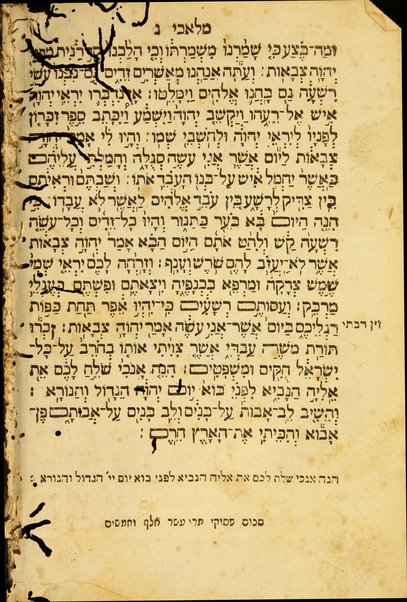 מלאכי ג
וּמַה־בֶּצַע כִּי שָׁמַרְנוּ מִשְׁמַרְתּוֹ וְכִי הָלַכְנוּ קְדֹרַנִּית מִפְּנֵי
יְהוָה צְבָאוֹת׃ וְעַתָּה אֲנַחְנוּ מְאַשְּׁרִים זֵדִים גַּם־נִבְנוּ עֹשֵׂי
רִשְׁעָה גַּם בָּחֲנוּ אֱלֹהִים וַיִּמָּלֵטוּ׃ אָז נִדְבְּרוּ יִרְאֵי יְהוָה
אִישׁ אֶל־רֵעֵהוּ וַיַּקְשֵׁב יְהוָה וַיִּשְׁמָע וַיִּכָּתֵב סֵפֶר זִכָּרוֹן
לְפָנָיו לְיִרְאֵי יְהוָה וּלְחֹשְׁבֵי שְׁמוֹ׃ וְהָיוּ לִי אָמַר יְהוָה
צְבָאוֹת לַיּוֹם אֲשֶׁר אֲנִי עֹשֶׂה סְגֻלָּה וְחָמַלְתִּי עֲלֵיהֶם
כַּאֲשֶׁר יַחְמֹל אִישׁ עַל־בְּנוֹ הָעֹבֵד אֹתוֹ׃ וְשַׁבְתֶּם וּרְאִיתֶם
בֵּין צַדִּיק לְרָשָׁע בֵּין עֹבֵד אֱלֹהִים לַאֲשֶׁר לֹא עֲבָדוֹ׃ כִּי
הִנֵּה הַיּוֹם בָּא בֹּעֵר כַּתַּנּוּר וְהָיוּ כָל־זֵדִים וְכָל־עֹשֵׂה
רִשְׁעָה קַשׁ וְלִהַט אֹתָם הַיּוֹם הַבָּא אָמַר יְהוָה צְבָאוֹת
אֲשֶׁר לֹא־יַעֲזֹב לָהֶם שֹׁרֶשׁ וְעָנָף׃ וְזָרְחָה לָכֶם יִרְאֵי שְׁמִי
שֶׁמֶשׁ צְדָקָה וּמַרְפֵּא בִּכְנָפֶיהָ וִיצָאתֶם וּפִשְׁתֶּם כְּעֶגְלֵי
מַרְבֵּק׃ וְעַסּוֹתֶם רְשָׁעִים כִּי־יִהְיוּ אֵפֶר תַּחַת כַּפּוֹת
רַגְלֵיכֶם בַּיּוֹם אֲשֶׁר־אֲנִי עֹשֶׂה אָמַר יְהוָה צְבָאוֹת׃ זִכְרוּ
זיין רבתי
תּוֹרַת מֹשֶׁה עַבְדִּי אֲשֶׁר צִוִּיתִי אוֹתוֹ בְחֹרֵב עַל־כָּל־
יִשְׂרָאֵל חֻקִּים וּמִשְׁפָּטִים׃ הִנֵּה אָנֹכִי שֹׁלֵחַ לָכֶם אֵת
אֵלִיָּה הַנָּבִיא לִפְנֵי בּוֹא יוֹם יְהוָה הַגָּדוֹל וְהַנּוֹרָא׃
וְהֵשִׁיב לֵב־אָבוֹת עַל־בָּנִים וְלֵב בָּנִים עַל־אֲבוֹתָם פֶּן־
אָבוֹא וְהִכֵּיתִי אֶת־הָאָרֶץ חֵרֶם׃
הנה אנכי שולח לכם את אליה הנביא לפני בוא יום יי' הגדול והנורא׃
סכום פסוקי תרי עשר אלף וחמשים